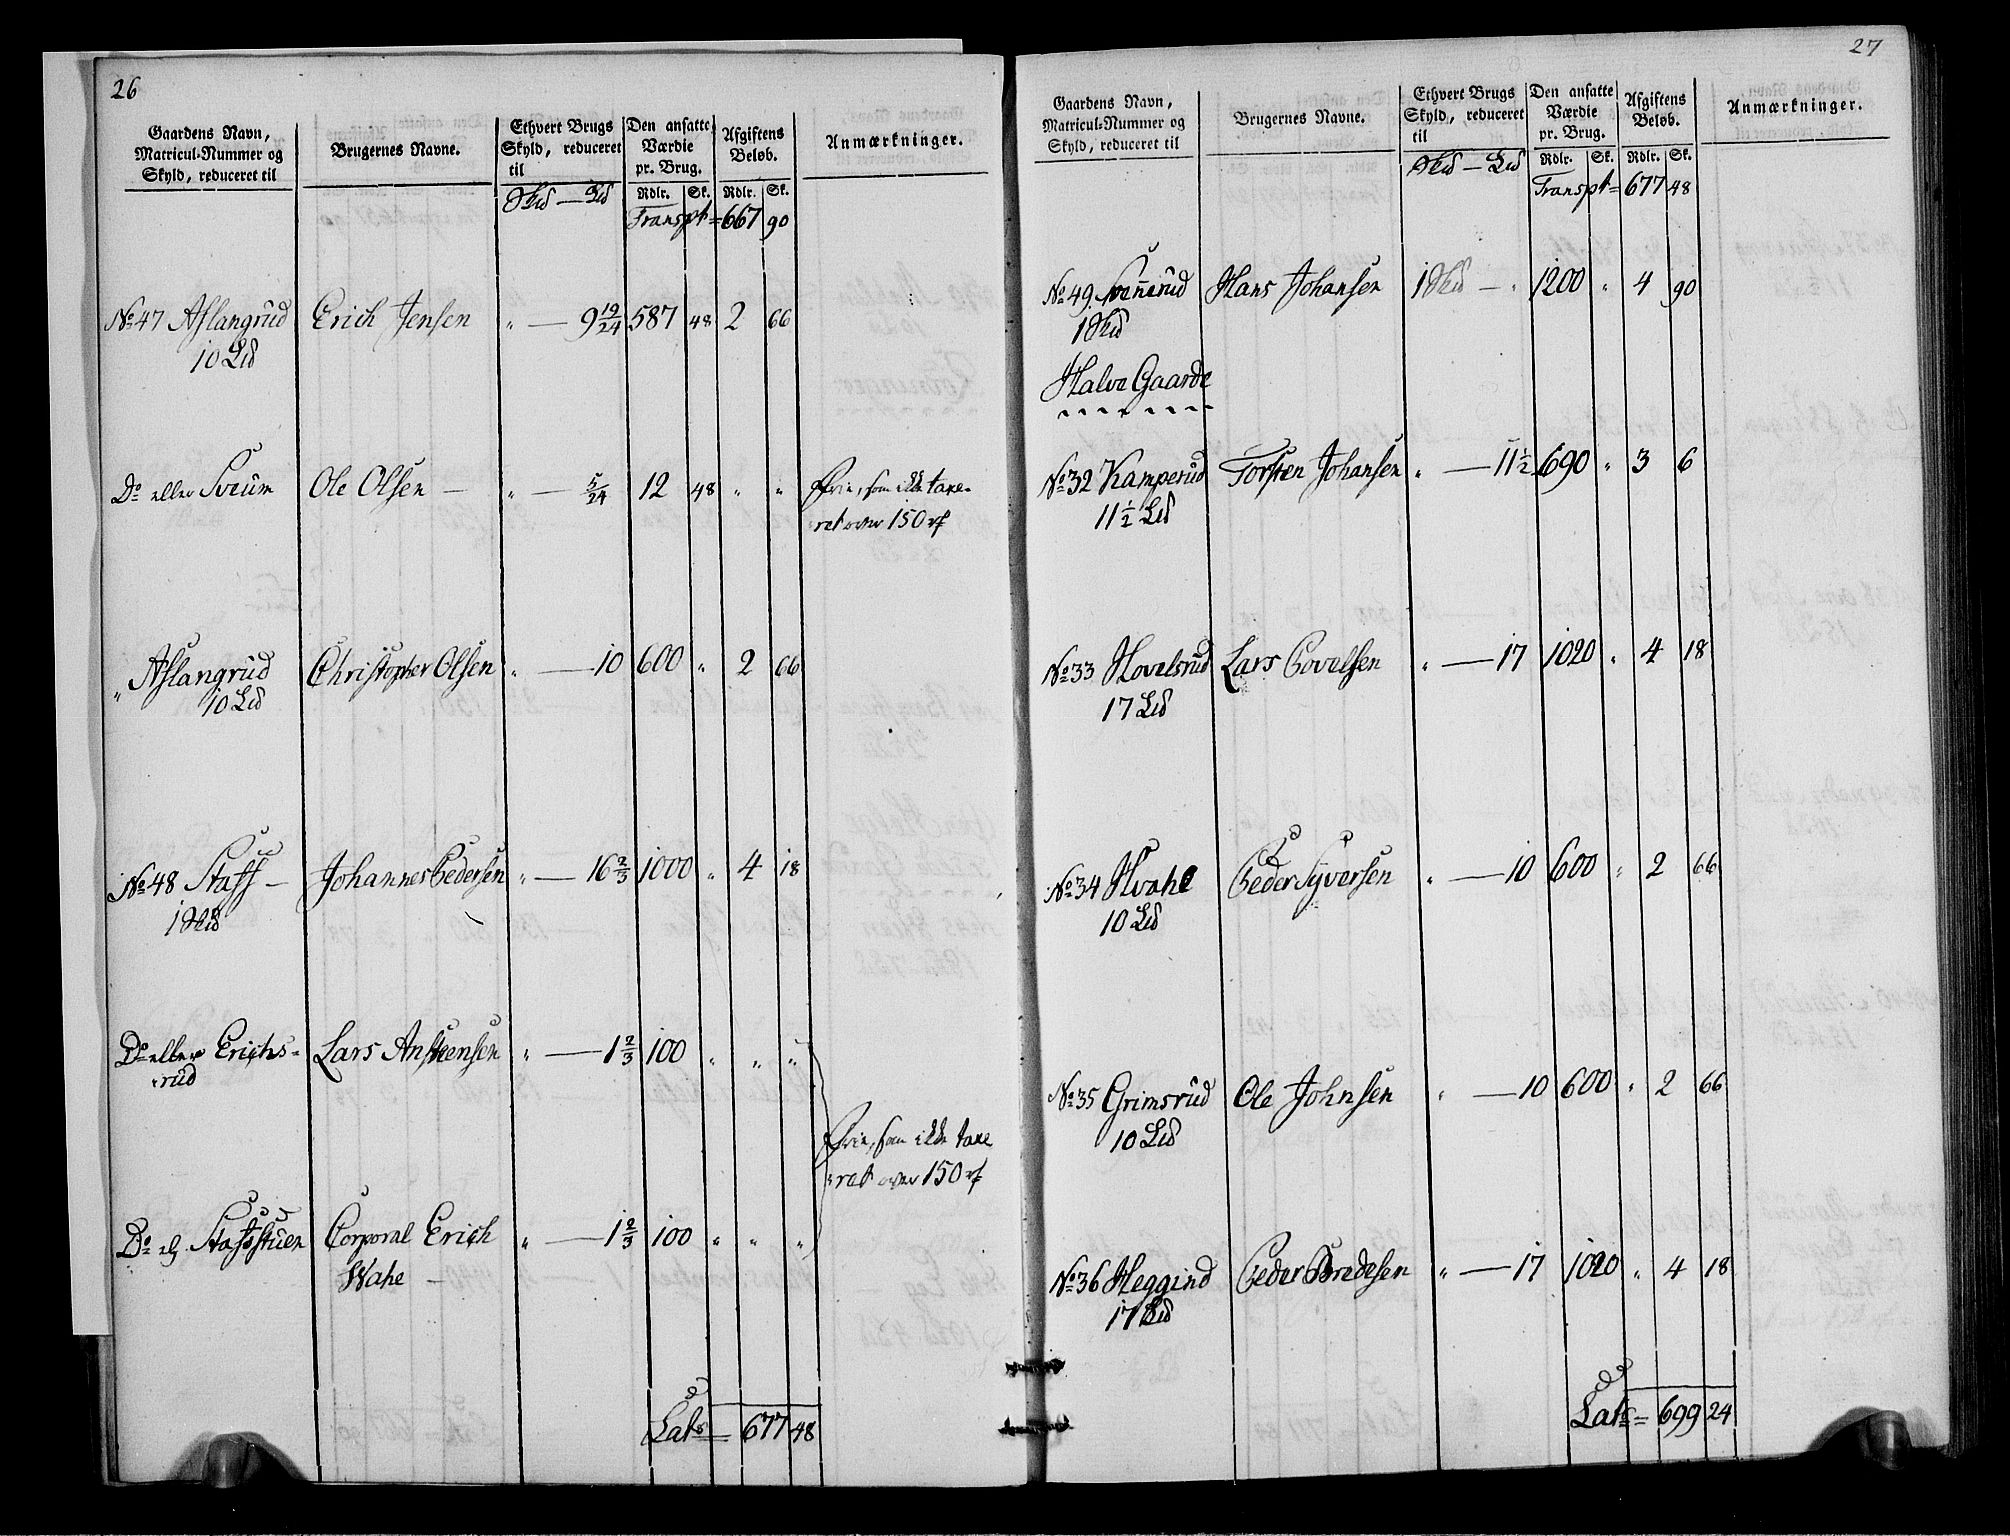 26
Gaardens Navn, Matricul-Nummer og Skyld, reduceret til
Brugernes Navne.
Ethvert Brugs Skyld, reduceret til
Den ansatte Værdie pr. Brug.
Afgiftens Beløb.
Anmærkninger.
Rdlr. Sk. Rdlr. Sk.
Skd — Ld
Transpt = 667 90
No 47 Aslangrud Erich Jensen " — 9 19/24 587 48 2 66
10 Ld
Do eller Sveum Ole Olsen — " — 5/24 12 48 " " Frie, som ikke taxe-
ret over 150 rd
" Aslangrud Christopher Olsen " — 10 600 " 2 66
10 Ld
No 48 Staff — Johannes Pedersen " — 16 2/3 1000 " 4 18
1 Skd
Do eller Erichs- Lars Anstensen " — 1 2/3 100 " " "
rud
Frie, som ikke taxe
ret over 150 rd
Do el. Staffstuen Corporal Erich " — 1 2/3 100 " " "
Wahe —
Lats = 677 48
27
Gaardens Navn, Matricul-Nummer og Skyld, reduceret til
Brugernes Navne.
Ethvert Brugs Skyld, reduceret til
Den ansatte Værdie pr. Brug.
Afgiftens Beløb.
Anmærkninger.
Rdlr. Sk. Rdlr. Sk.
Skd — Ld
Transpt = 677 48
No 49 Svenerud Hans Johansen 1 Skd — " 1200 " 4 90
1 Skd
Halve Gaarde
No 32 Kamperud Torsten Johansen " — 11 1/2 690 " 3 6
11 1/2 Ld
No 33 Hovelsrud Lars Povelsen " — 17 1020 " 4 18
17 Ld
No 34 Hvahe Peder Syversen " — 10 600 " 2 66
10 Ld
No 35 Grimsrud Ole Johnsen " — 10 600 " 2 66
10 Ld
No 36 Heggind Peder Bredesen " — 17 1020 " 4 18
17 Ld
Lats = 699 24